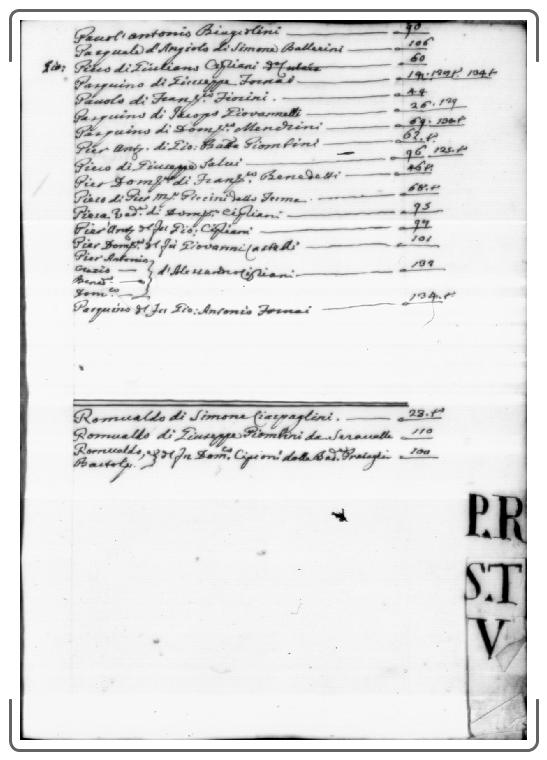 Pauol' antonio Biagiolini 90
Pasquale d'Angiolo di Simone Ballerini 106
Gio: Piero di Giuliano Cigliani 60
Pasquino di Giuseppe Fornai 134.t
Pauolo di Fran.co Fiorini. 44
Pasquino di Jacopo Giovannelli 26. 129
Pasquino di Dom.co Mendrini 69. 134.t
Pier Ant.o di Gio: Batta Piombini 62.t
Piero di Giuseppe Salvi 96 125.t
Pier Dom.co di Fran.co Benedetti 46.t
Piero di Pier M.a Piccini 68.t
Piera Ved.a di Dom.co Cigliani 95
Pier' Ant.o del fu Gio: Cigliani 97
Pier Dom.co del fu Giovanni Castelli 101
Pier Antonio
Orazio
Bened.o d'Alessandro Cigliani 132
Dom.co
Pasquino del fu Gio: Antonio Fornai 134.t
Romualdo di Simone Ciaspaglini. 28.t
Romualdo di Giuseppe Piombini da Serravalle 110
Romualdo, e del fu Dom.co Cipioni dalla Bad.a 100
Bartol.o
P.R
S.T
V